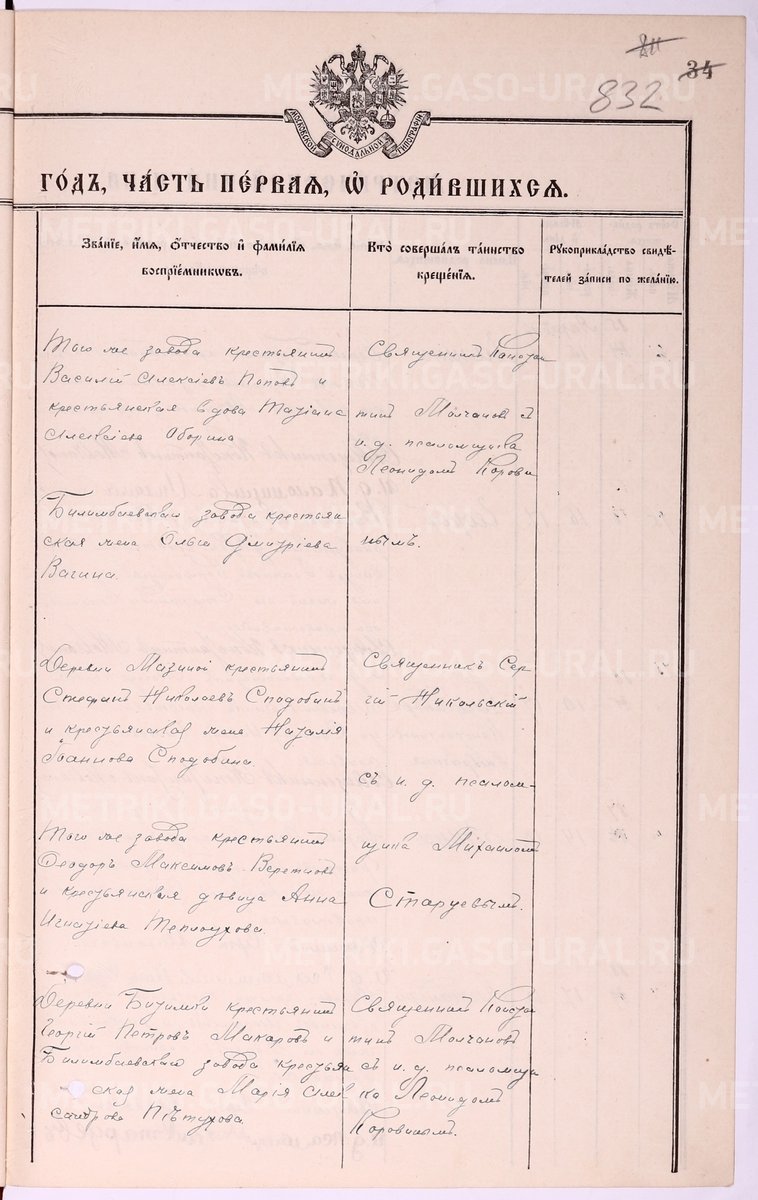 34
832
МОСКОВСКОЙ СУНОДАЛЬНОЙ ТИПОГРАФІИ
METRIKI.GASO-URAL.RU
ГО́ДЪ, ЧА́СТЬ ПЕ́РВАЯ, Ѡ҆ РОДИ́ВШИХСЯ.
Зва́нїе, и҆́мя, ѻ҆́тчество и҆ фами́лїя
воспрїе́мникѡвъ.
Кто̀ соверша́лъ та́инство
креще́нїя.
Рꙋкоприкла́дство свидѣ́-
телей за́писи по жела́нїю.
Того же завода крестьянинъ
Василій Алексіевъ Поповъ и
крестьянская вдова Татіана
Алексіева Оборина
Священникъ Констан
тинъ Молчановъ съ
и. д. псаломщика
Леонидомъ Корови
нымъ.
Билимбаевскаго завода крестьян
ская жена Ольга Димитріева
Вагина.
Деревни Мазиной крестьянинъ
Стефанъ Николаевъ Сподобинъ
и крестьянская жена Наталія
Іоаннова Сподобина.
Священникъ Сер-
гій Никольскій
съ и. д. псалом-
щика Михаиломъ
Старцевымъ.
Того же завода крестьянинъ
Ѳеодоръ Максимовъ
и крестьянская дѣвица Анна
Игнатіева Теплоухова.
Деревни Битимки крестьянинъ
Георгій Петровъ Макаровъ и
Билимбаевскаго завода крестьян
ская жена Марія Алек
сандрова Пѣтухова.
Священникъ Констан
тинъ Молчановъ
съ и. д. псаломщи
ка Леонидомъ
Коровинымъ.